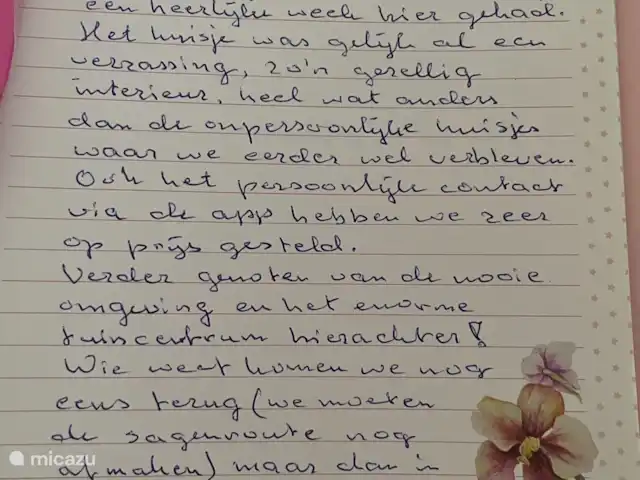 een heerlijke week hier gehad.
Het huisje was gelijk al een
verrassing, zo'n gezellig
interieur, heel wat anders
dan de onpersoonlijke huisjes
waar we eerder wel verbleven.
Ook het persoonlijke contact
via de app hebben we zeer
op prijs gesteld.
Verder genoten van de mooie
omgeving en het enorme
tuincentrum hierachter!
Wie weet komen we nog
eens terug (we moeten
de sagenroute nog
afmaken) maar dan in
micazu